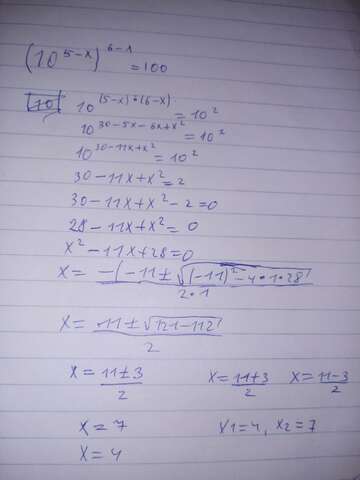 (10^(5-x))^(6-1) = 100
10 10^((5-x)•(6-x)) = 10^2
10^(30-5x-6x+x^2) = 10^2
10^(30-11x+x^2) = 10^2
30-11x+x^2 = 2
30-11x+x^2-2=0
28-11x+x^2 = 0
x^2-11x+28=0
x = -(-11±√(-11)^2-4•1•28 / 2•1
x = 11±√121-112 / 2
x = 11±3 / 2 x = 11+3 / 2 x = 11-3 / 2
x = 7 x1=4, x2=7
x = 4